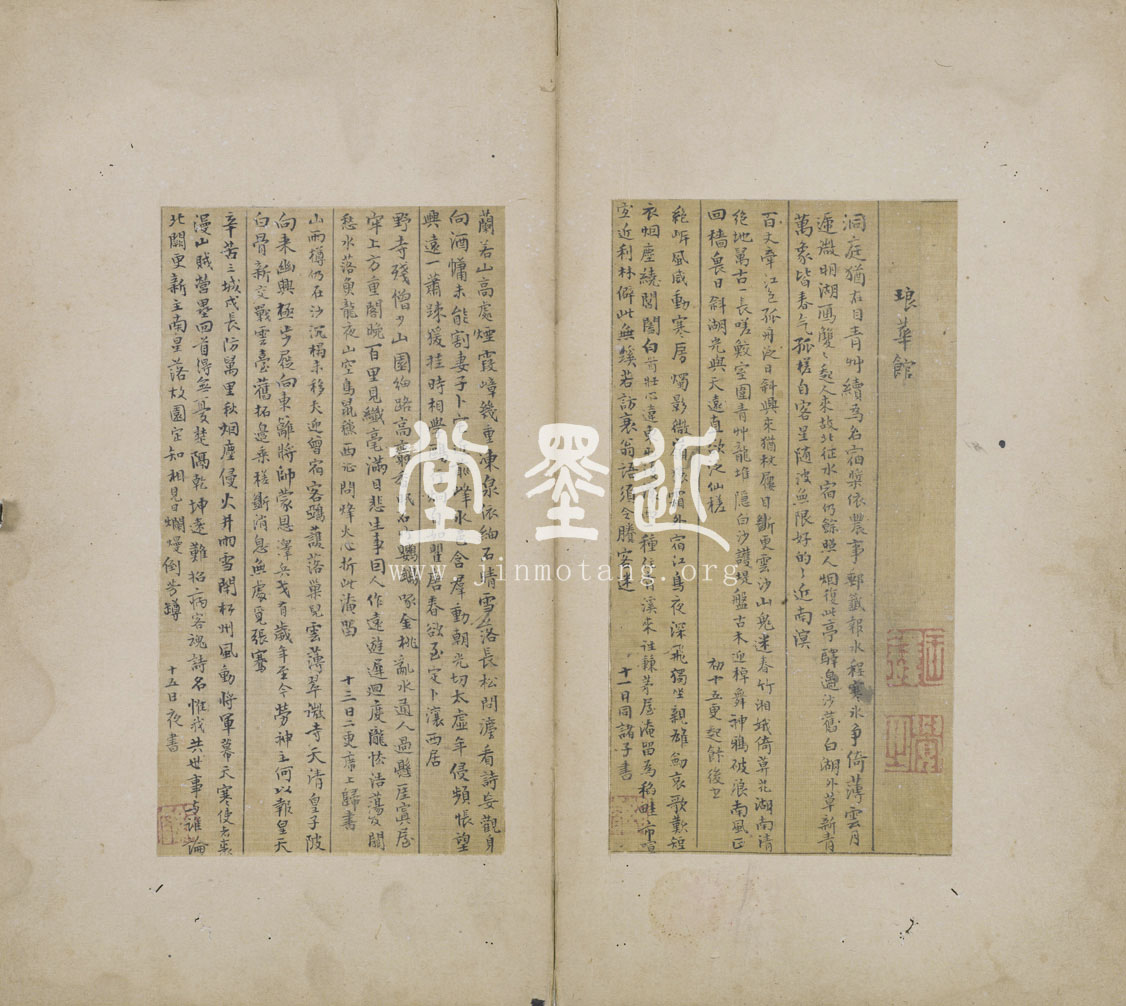 琅華館
洞庭猶在目青艸續為名宿槳依農事郵籤報水程寒冰爭倚薄雲月
遞微明湖鴈雙〻起人來故北征水宿仍餘照人烟復此亭驛邊沙舊白湖外草新青
萬象皆春气孤槎自客星随波無限好的〻近南溟
百丈牽江色孤舟泛日斜興來猶杖屨目斷更雲沙山鬼迷春竹湘娥倚暮花湖南清
絶地萬古一長嗟鮫室圍青艸龍堆隱白沙護堤盤古木迎棹舞神鴉破浪南風正
回檣畏日斜湖光與天遠直欲泛仙槎 初十五更起飲後
絶岸風威動寒房燭影微猿霜外宿江鳥夜深飛獨坐親雄劍哀歌歎短
衣烟塵繞閶闔白首壯心違種青溪來往茅屋淹留為稻畦市喧
宜近利林僻此無蹊若訪衰翁語須令賸客迷 十一日同諸子書
蘭若山高處煙霞嶂幾重凍泉依細石晴雪落長松問看詩妄觀身
向酒慵未能割妻子卜峰水含羣動朝光切太虛年侵頻悵望
興遠一蕭疎猿挂時相學瞿唐春欲至定卜瀼西居
野寺殘僧少山園細路高麝眠石鸚鵡啄金桃亂水通人過懸崖寘屋
牢上方重閣晚百里見纖毫滿目悲生事因人作遠遊遲迴度隴怯浩蕩及關
愁水落魚龍夜山空鳥鼠穐西征問烽火心折此淹留 十三日二更席上歸書
山雨樽仍在沙沉榻未移犬迎曾宿客鴉護落巢兒雲薄翠微寺天清皇子陂
向來幽興極步屐向東籬將帥蒙恩澤兵戈有歲年至今勞神主何以報皇天
白骨新交戰雲臺舊拓邊乘槎斷消息無處覓張騫
辛苦三城戍長防萬里秋烟塵侵火井雨雪閉松州風動將軍幕天寒使者裘
漫山賊營壘回首得無憂楚隔乾坤遠難招病客魂詩名惟我共世事與誰論
北闕更新主南星落故園定知相見日爛熳倒芳罇 十五日夜書
近墨堂
www.jinmotang.org